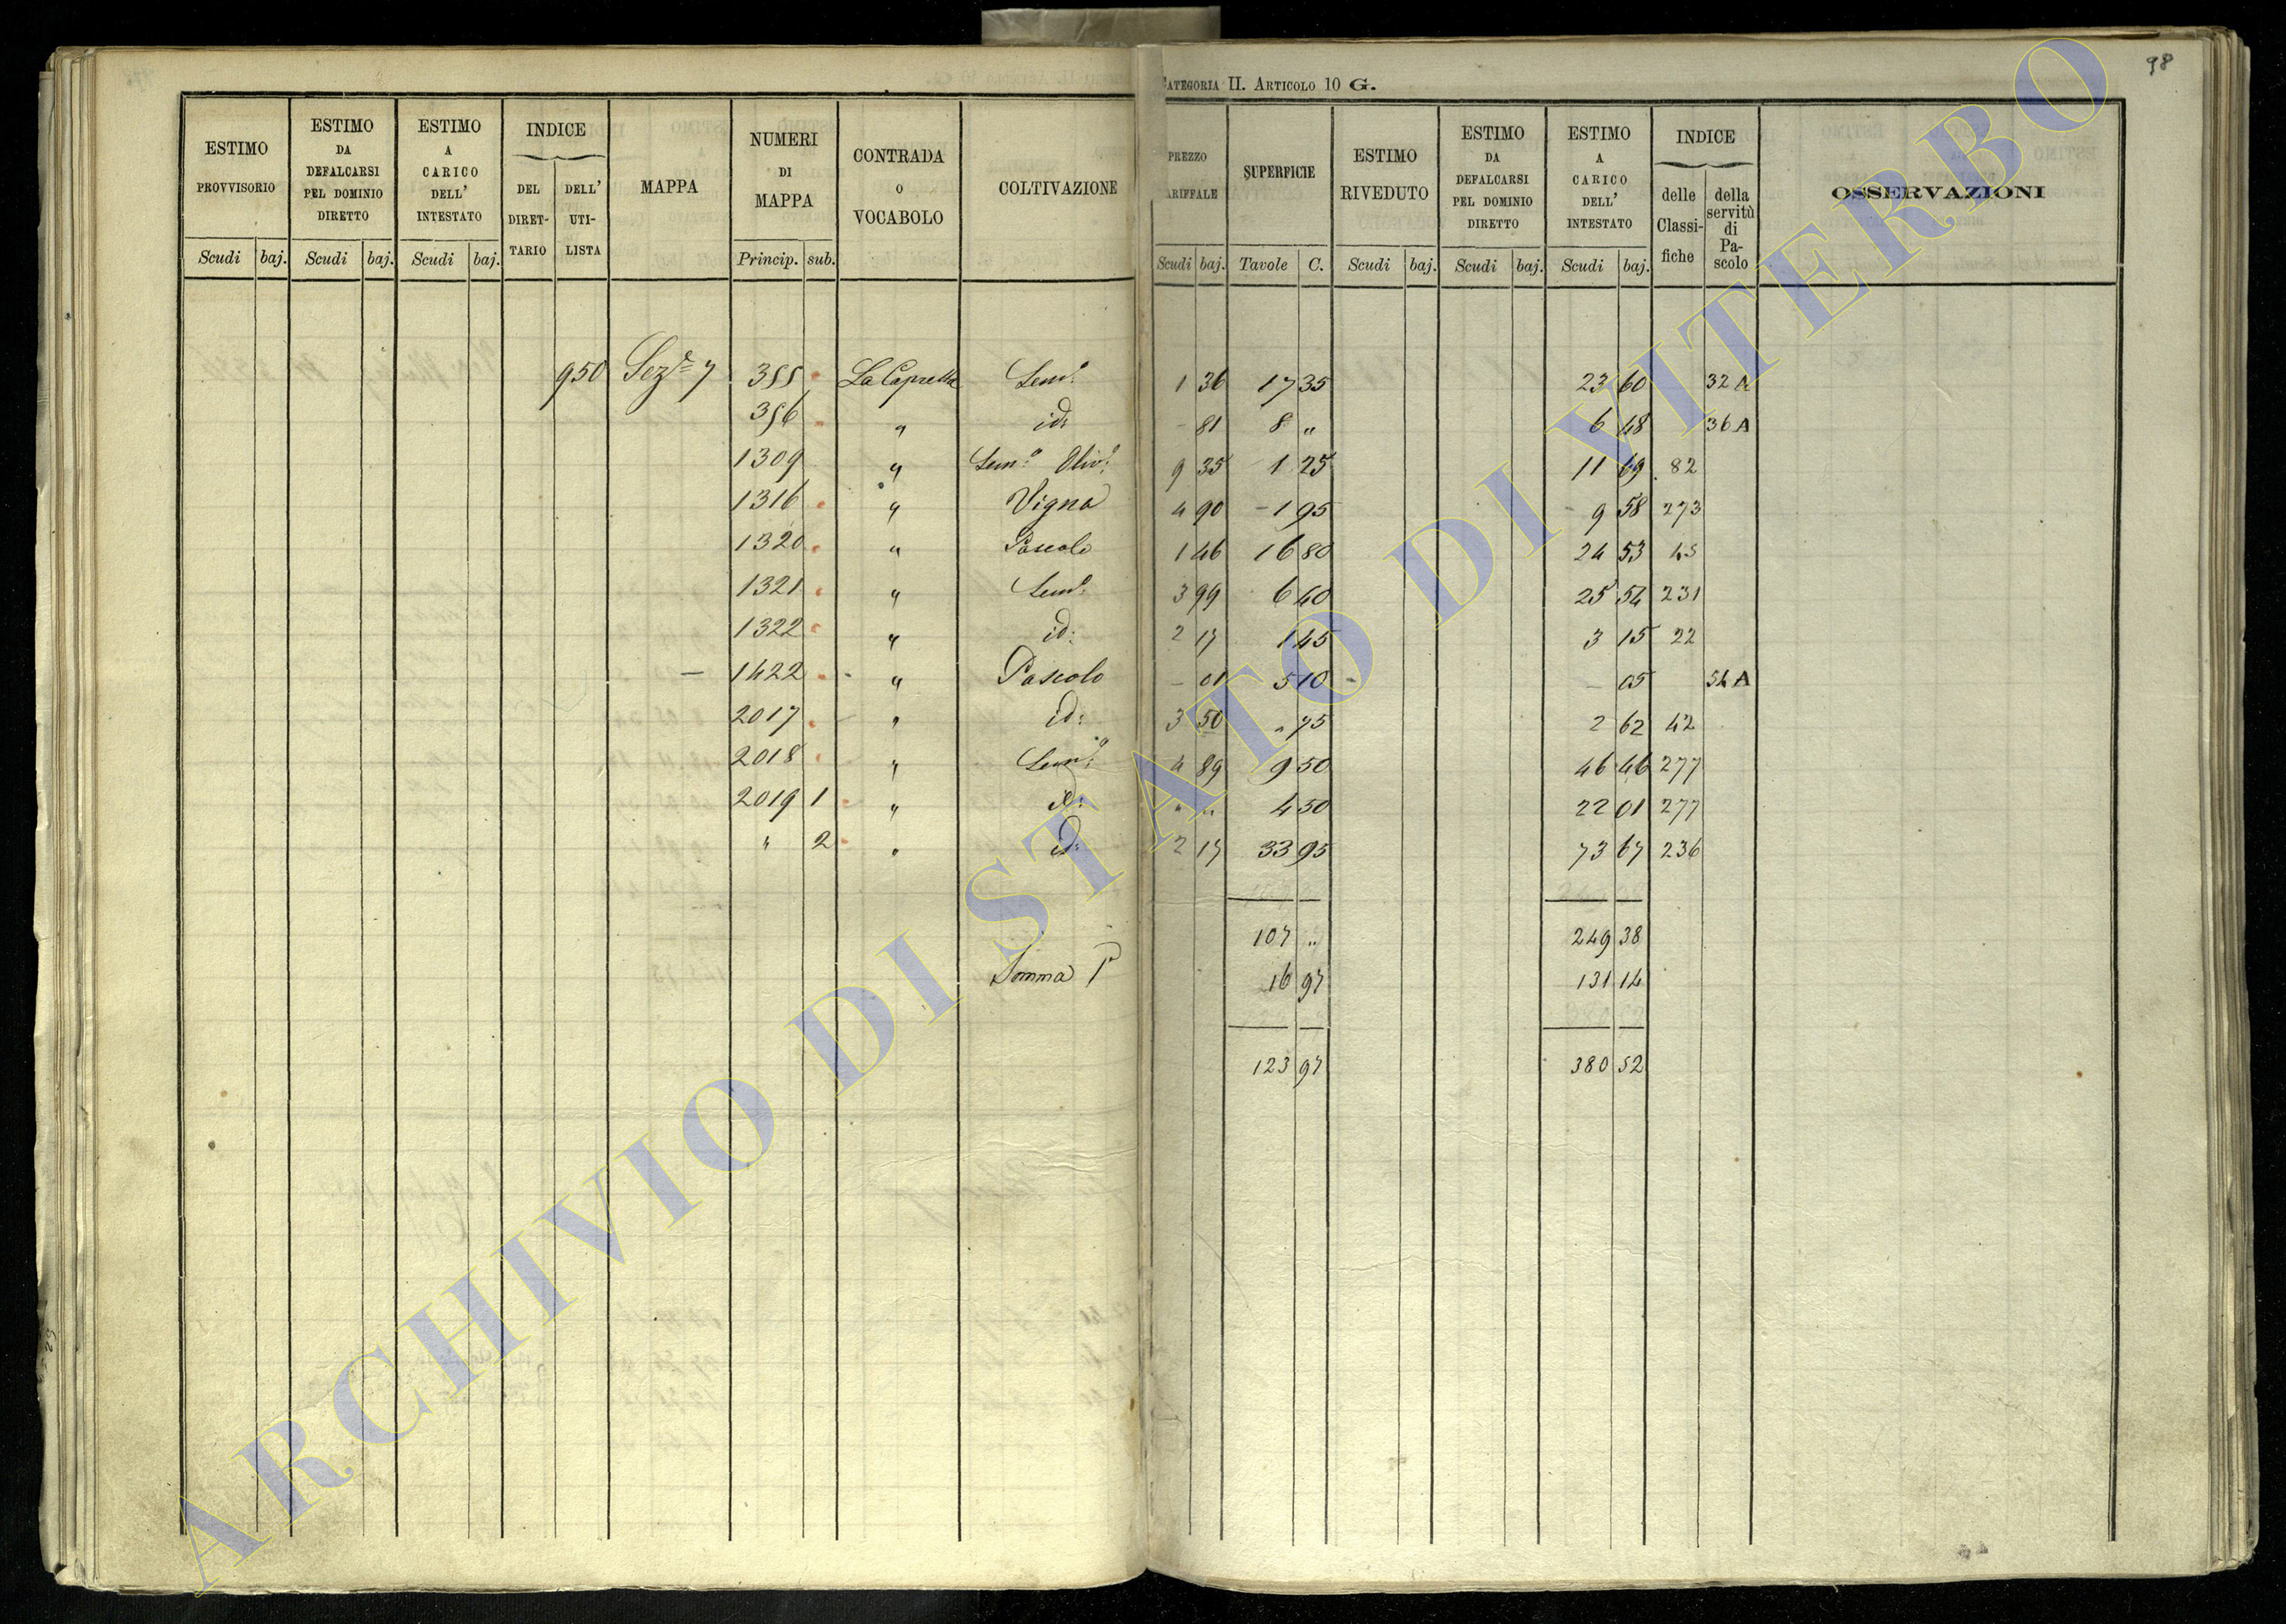 98
CATEGORIA II. ARTICOLO 10 G.
ESTIMO PROVVISORIO Scudi baj.
ESTIMO DA DEFALCARSI PEL DOMINIO DIRETTO Scudi baj.
ESTIMO A CARICO DELL' INTESTATO Scudi baj.
INDICE DEL DIRET-TARIO DELL' UTI-LISTA
MAPPA
NUMERI DI MAPPA Princip. sub.
CONTRADA O VOCABOLO
COLTIVAZIONE
PREZZO TARIFFALE Scudi baj.
SUPERFICIE Tavole C.
ESTIMO RIVEDUTO Scudi baj.
ESTIMO DA DEFALCARSI PEL DOMINIO DIRETTO Scudi baj.
ESTIMO A CARICO DELL' INTESTATO Scudi baj.
INDICE delle Classi-fiche della servitù di Pa-scolo
OSSERVAZIONI
950 Sez.e 7 355 La Capretta Sem.o 1 36 17 35 23 60 32 A
356 " id: - 81 8 " 6 48 36 A
1309 " Sem.o Oliv.o 9 35 1 25 11 69 82
1316 " Vigna 4 90 - 1 95 - 9 58 273
1320 " Pascolo 1 46 16 80 24 53 45
1321 " Sem.o 3 99 6 40 25 54 231
1322 " id: 2 17 1 45 3 15 22
- 1422 " Pascolo - 01 5 10 - - 05 54 A
2017 " id: 3 50 " 75 2 62 42
2018 " Sem.o 4 89 9 50 46 46 277
2019 1 " id: " " 4 50 22 01 277
" 2 " id: 2 17 33 95 73 67 236
107 " 249 38
Somma P 16 97 131 14
123 97 380 52
ARCHIVIO DI STATO DI VITERBO